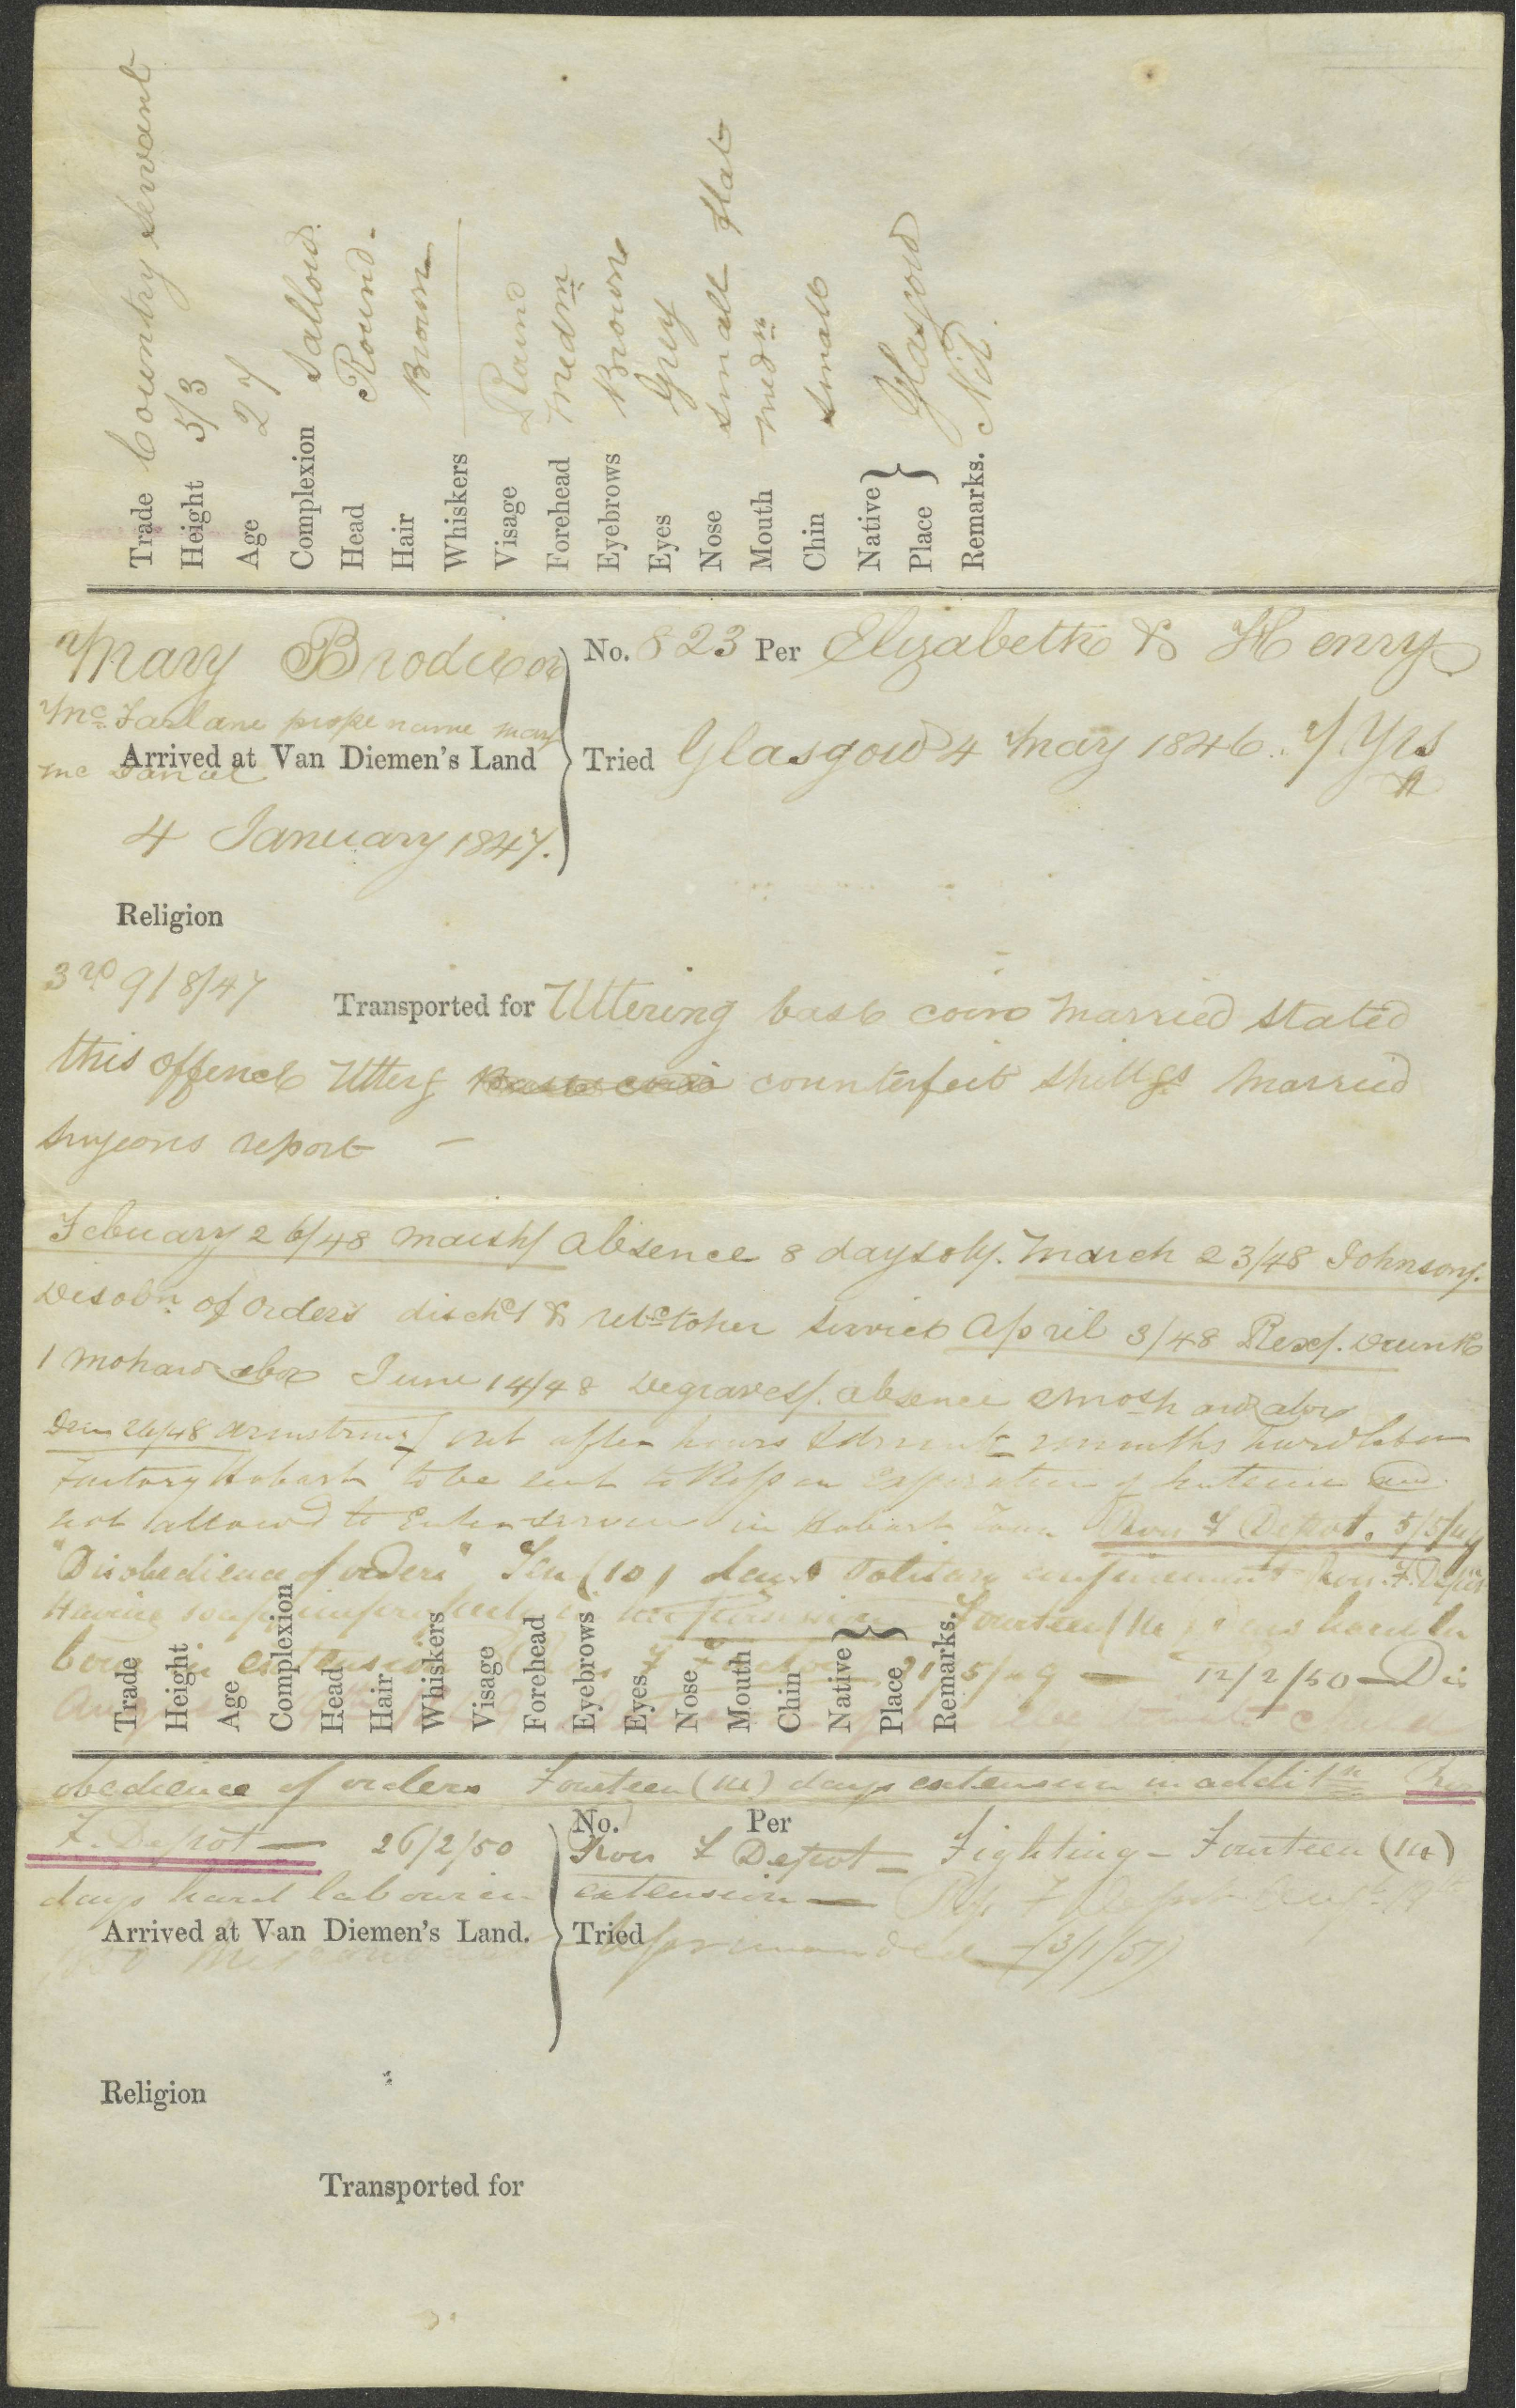 Trade Country Servant
Height 5/3
Age 27
Complexion Sallow
Head Round
Hair Brown
Whiskers
Visage Round
Forehead Medm
Eyebrows Brown
Eyes Grey
Nose small flat
Mouth medm
Chin small
Native Place } Glasgow
Remarks. Nil.
Mary Brodie or
McFarlane prope name Mary
Mc
Arrived at Van Diemen's Land
4 January 1847.
No. 823 Per Elizabeth & Henry
Tried Glasgow 4 May 1846. 7 Yrs
Religion
3rd 9/8/47
Transported for Uttering base coin Married Stated
this offence Utterg Base coin counterfeit shillgs Married
Surgeons report —
Febuary 26/48 absence 8 days March 23/48 Johnson/.
Disobn. of orders disch'd & retd to her service April 3/48 Rex/. Drunk
1 Mo hard labr June 14/48 Degraves/. absence 2 Mos h and labr
Decm 26/48 Armstrong/ out after hours & drunk months hard labor
Factory Hobart to be sent to Ross on expiration of sentence and
not allowed to Enter service in Hobart Town Ross F Depot. 5/5/49
"Disobedience of orders" Ten (10) days Solitary confinement Ross. F. Depot
Having soap improperly in her possession Fourteen (14) days hard la
bour in extension Ross F Factory 31/5/49 — 12/2/50 — Dis
Trade
Height
Age
Complexion
Head
Hair
Whiskers
Visage
Forehead
Eyebrows
Eyes
Nose
Mouth
Chin
Native Place }
Remarks.
obedience of orders Fourteen (14) days extension in additn Ross
F. Depot — 26/2/50
No. Per
Ross F Depot — Fighting — Fourteen (14)
days hard labour in extension —
Arrived at Van Diemen's Land.
Tried
1850 Misconduct Reprimanded (3/1/51)
Religion
Transported for